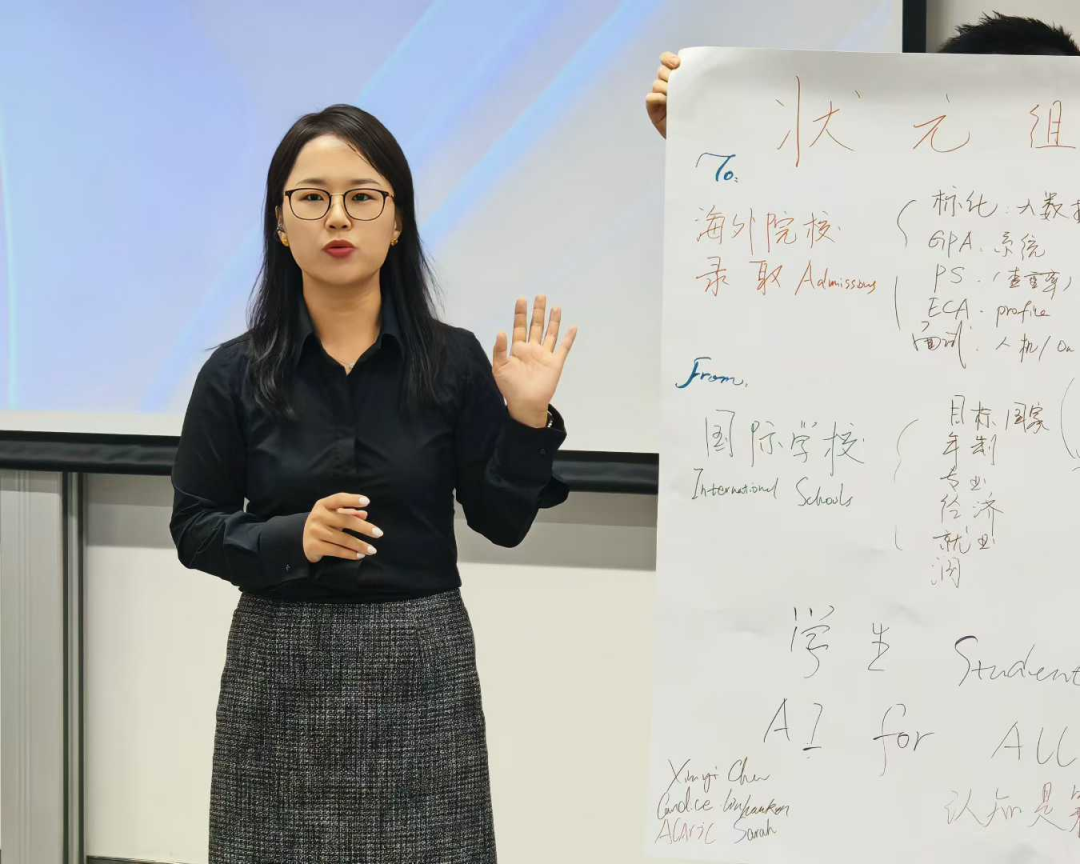 状元组
To:
海外院校
录取 Admissions
标化:大数据
GPA.系统
PS.(查重率)
ECA.profile
面试.人机/On
From.
国际学校
International Schools
目标国家
年制
专业
经济
就业
润
学生 Student
AI for ALL
Xinyi Chen
Candice
Alaric Sarah
认知是